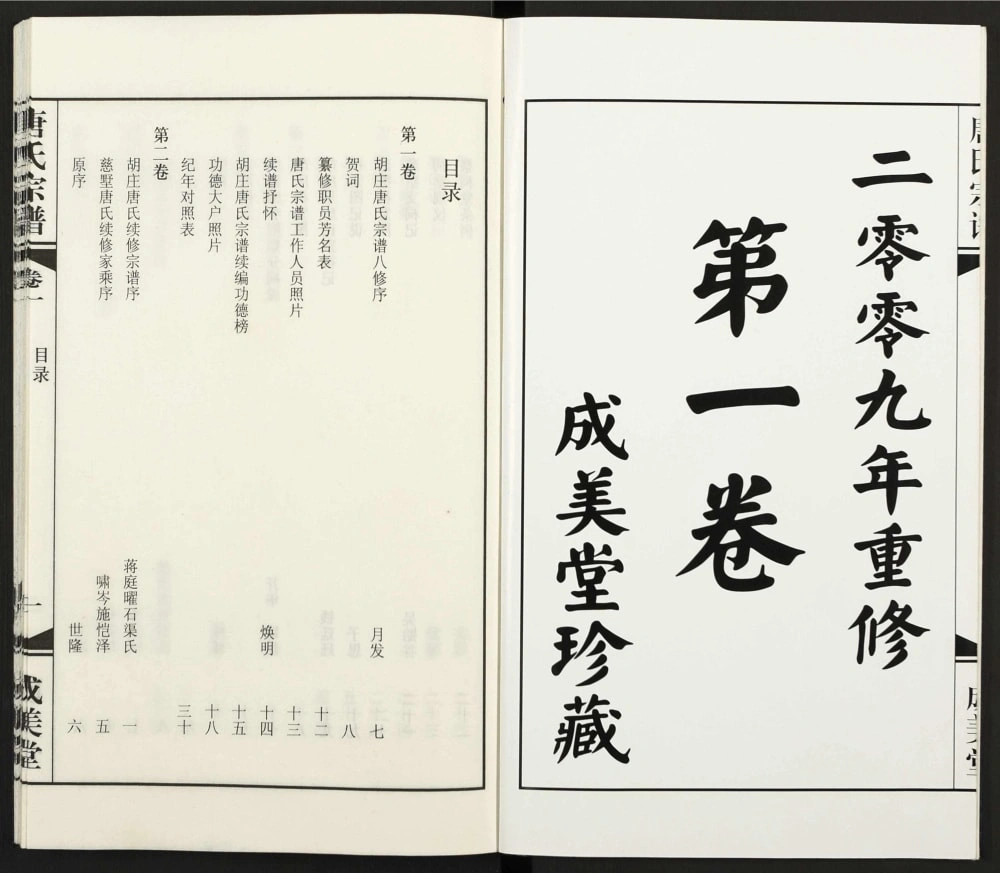 唐氏宗谱
成美堂
二零零九年重修
第一卷
成美堂珍藏
目录
第一卷
胡庄唐氏宗谱八修序 月发 七
贺词 八
纂修职员芳名表 十二
唐氏宗谱工作人员照片 十三
续谱抒怀 焕明 十四
胡庄唐氏宗谱续编功德榜 十五
功德大户照片 十八
纪年对照表 三十
第二卷
胡庄唐氏续修宗谱序 蒋庭曜石渠氏 一
慈墅唐氏续修家乘序 啸岑施恺泽 五
原序 世隆 六
唐氏宗谱 卷一 目录 一 成美堂